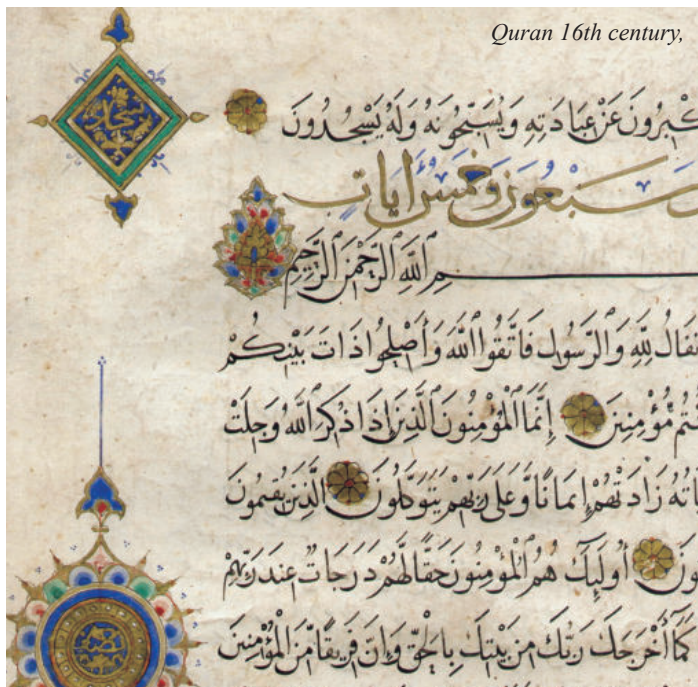 Quran 16th century,
كْبِرُونَ عَنْ عِبَادَتِهِ وَيُسَبِّحُونَهُ وَلَهُ يَسْجُدُونَ
سَبْعُونَ وَخَمْسُ اٰيَاتٍ
مِ اللهِ الرَّحْمٰنِ الرَّحِيمِ
نفَالُ لِلّٰهِ وَالرَّسُولِ فَاتَّقُوا اللهَ وَأَصْلِحُوا ذَاتَ بَيْنِكُمْ
نتُم مُّؤْمِنِينَ إِنَّمَا الْمُؤْمِنُونَ الَّذِينَ إِذَا ذُكِرَ اللهُ وَجِلَتْ
اتُهُ زَادَتْهُمْ إِيمَانًا وَّعَلَى رَبِّهِمْ يَتَوَكَّلُونَ الَّذِينَ يُقِيمُونَ
ونَ أُولٰئِكَ هُمُ الْمُؤْمِنُونَ حَقًّا لَّهُمْ دَرَجَاتٌ عِندَ رَبِّهِمْ
كَمَا أَخْرَجَكَ رَبُّكَ مِن بَيْتِكَ بِالْحَقِّ وَإِنَّ فَرِيقًا مِّنَ الْمُؤْمِنِينَ